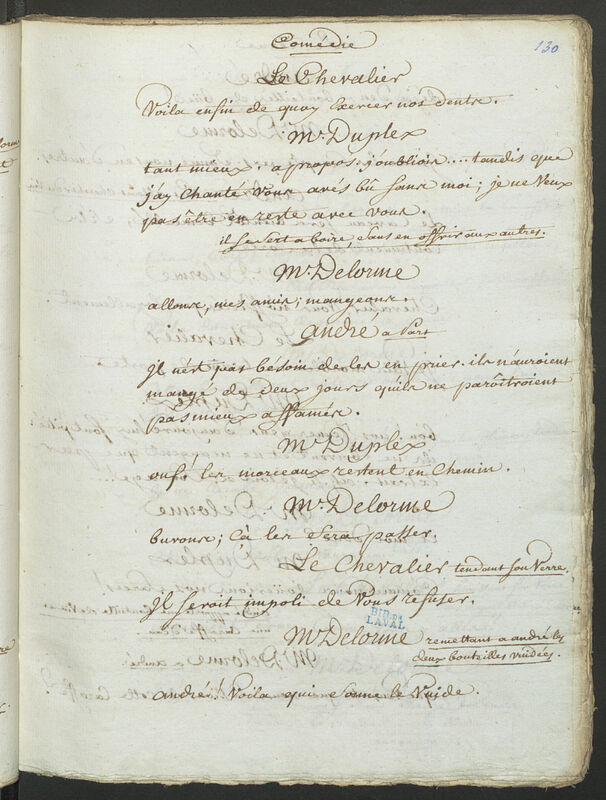 Comédie
130
Le Chevalier
Voila enfin de quoy Exercer nos dents.
Mr. Duplex
tant mieux. a propos j'oubliois.... tandis que
j'ay Chanté vous avés bû sans moi; je ne veux
pas être en reste avec vous.
il se sert a boire, sans en offrir aux autres.
Mr. Delorme
allons, mes amis; mangeons.
andré a Part
Il n'est pas bésoin de les en prier. ils n'auroient
mangé de deux jours qu'ils ne parôitroient
pas mieux affamés.
Mr. Duplex
ouf! les morceaux restent en Chemin.
Mr. Delorme
buvons; Cà les fera passer
Le Chevalier tendant son Verre.
Il seroit impoli de Vous refuser.
BIB. DE
LAVAL
Mr. Delorme remettant a andré les
deux bouteilles vuidées.
andré! Voila qui sonne le Vuide.